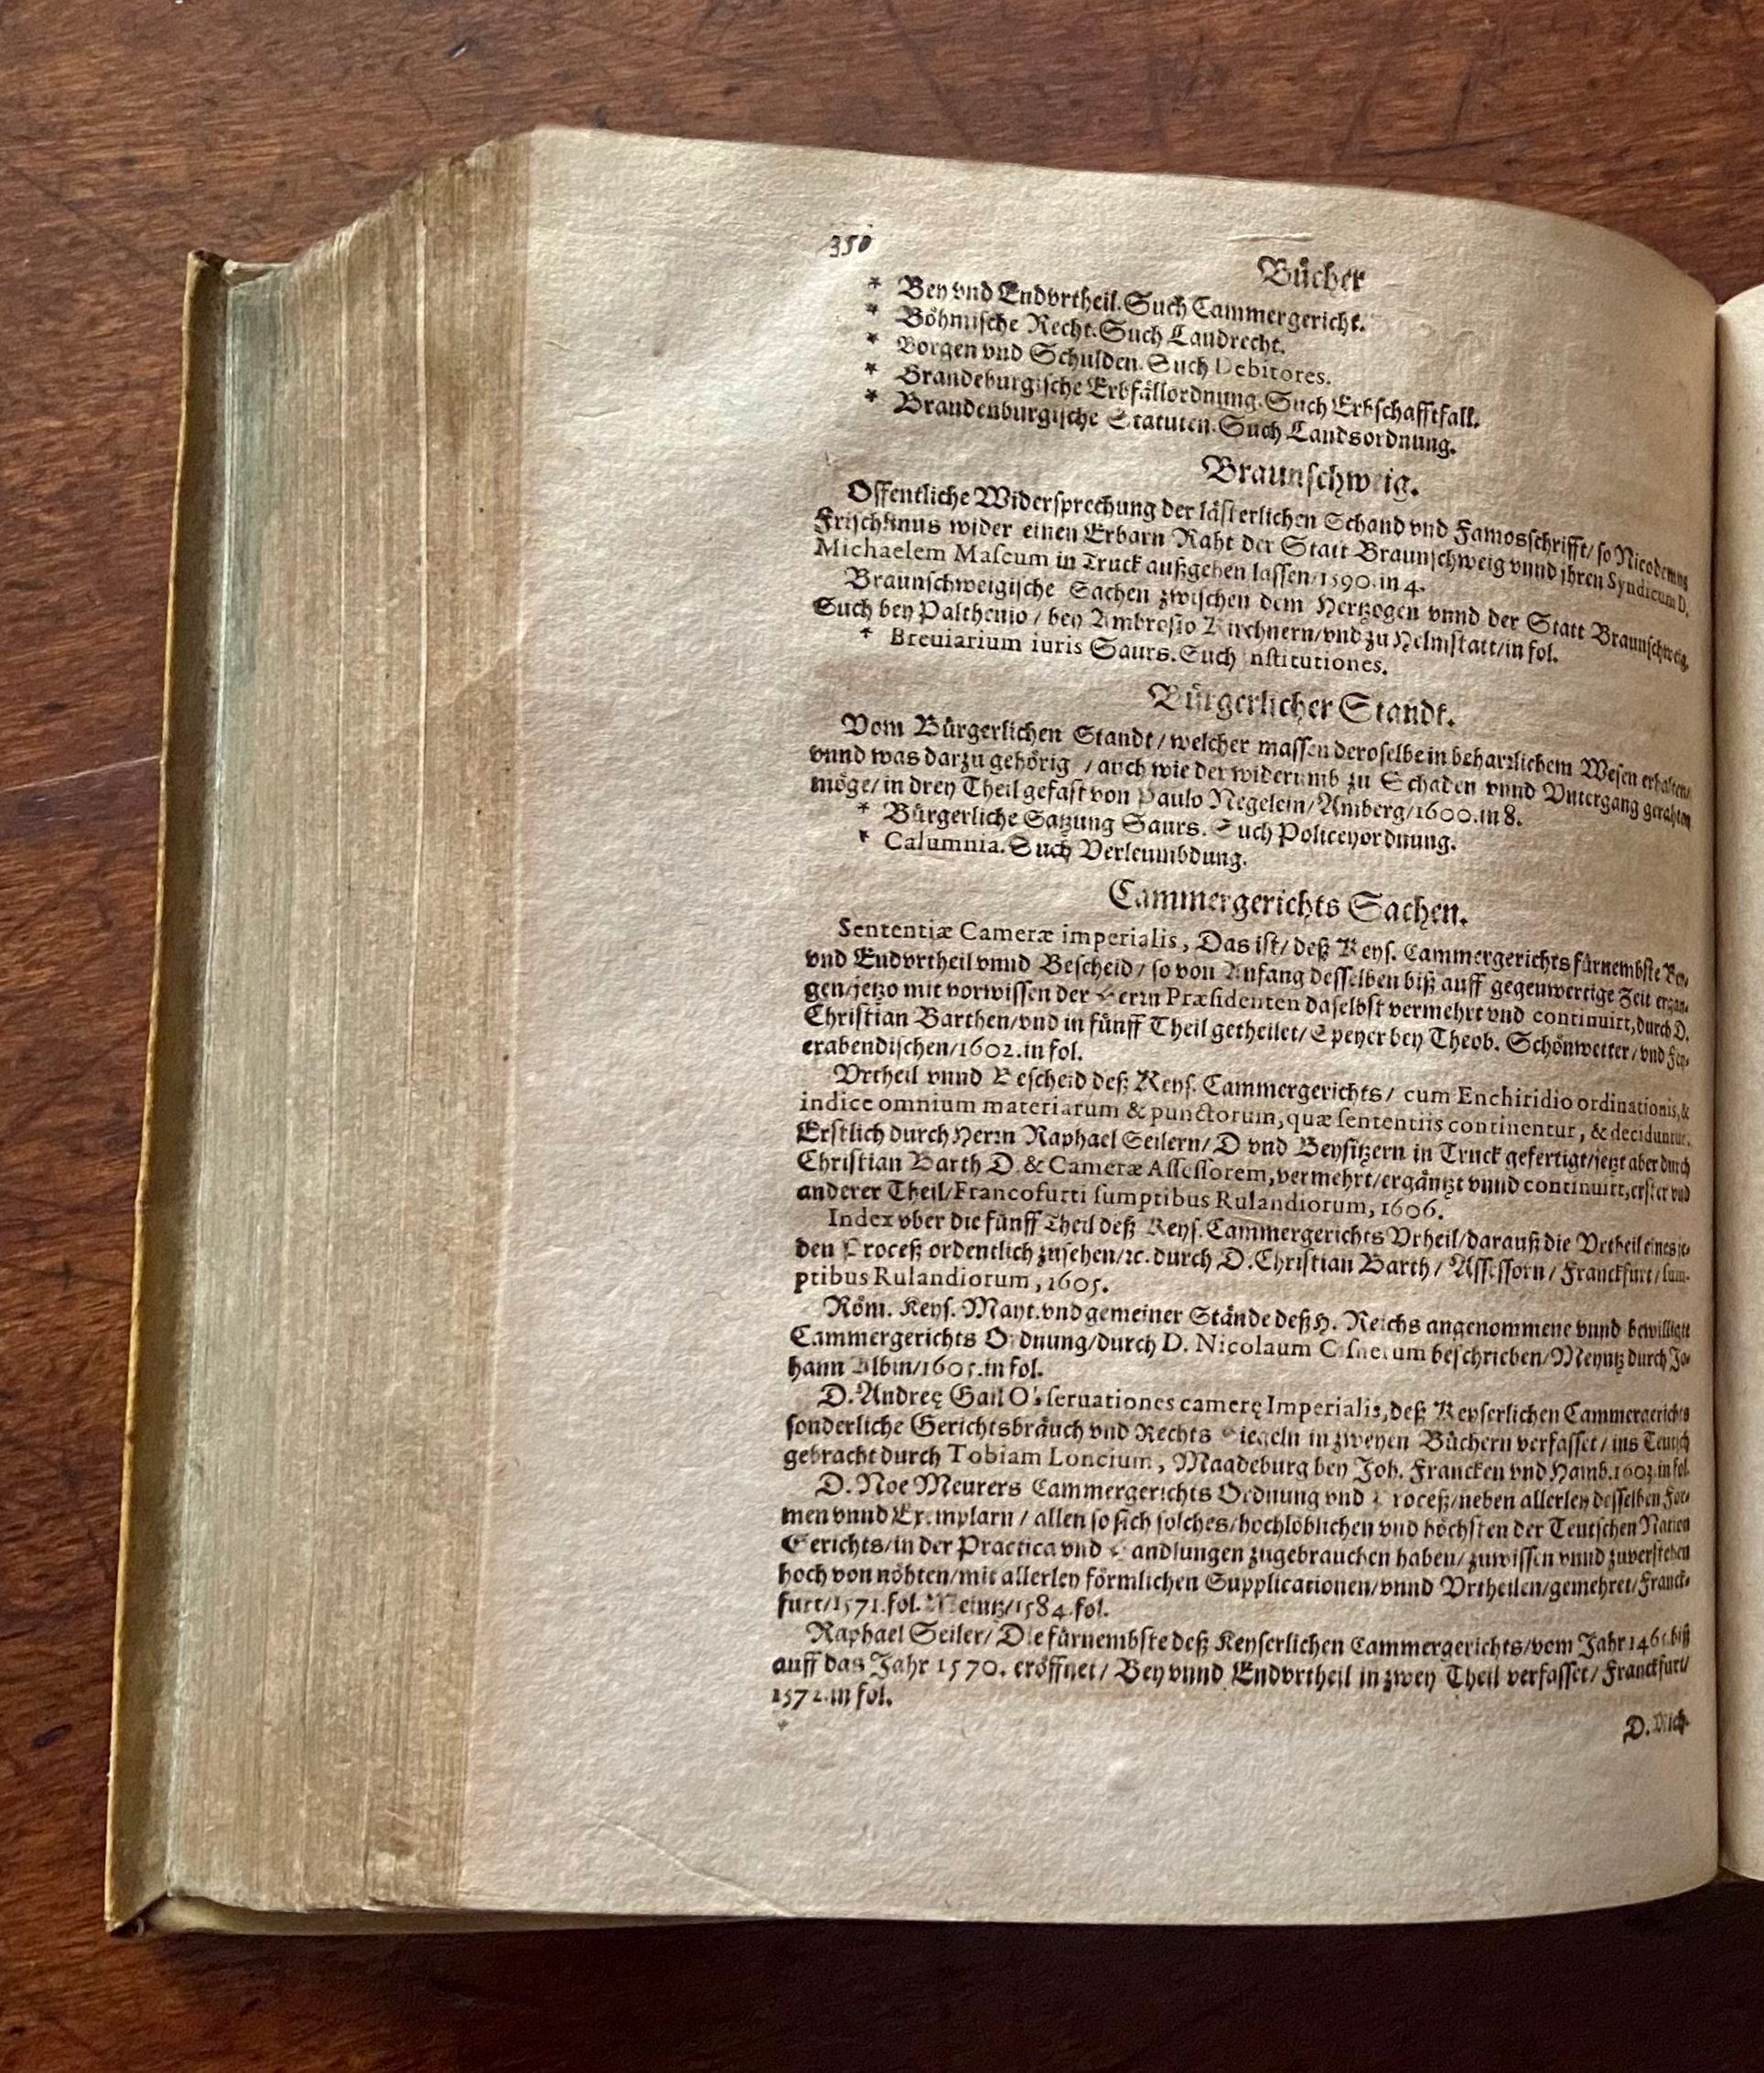 350
Bücher
* Bey vnd Endvrtheil. Such Cammergericht.
* Böhmische Recht. Such Landrecht.
* Borgen vnd Schulden. Such Debitores.
* Brandeburgische Erbfällordnung. Such Erbschafftfall.
* Brandenburgische Statuten. Such Landsordnung.
Braunschweig.
Offentliche Widersprechung der lästerlichen Schand vnd Famosschrifft/ so Nicodemus
Frischlinus wider einen Erbarn Raht der Statt Braunschweig vnnd jhren Syndicum D.
Michaelem Mascum in Truck außgehen lassen/1590. in 4.
Braunschweigische Sachen zwischen dem Hertzogen vnnd der Statt Braunschweig.
Such bey Palthenio / bey Ambrosio Kirchnern/vnd zu Helmstatt/in fol.
* Breuiarium iuris Saurs. Such Institutiones.
Bürgerlicher Standt.
Vom Bürgerlichen Standt / welcher massen deroselbe in beharzlichem Wesen erhalten/
vnnd was darzu gehörig / auch wie der widerumb zu Schaden vnnd Vntergang gerahten
möge/ in drey Theil gefast von Paulo Negelein/Amberg/1600. in 8.
* Bürgerliche Satzung Saurs. Such Policeyordnung.
* Calumnia. Such Verleumbdung.
Cammergerichts Sachen.
Sententiæ Cameræ imperialis, Das ist/ deß Keys. Cammergerichts fürnembste Bey-
vnd Endvrtheil vnnd Bescheid / so von Anfang desselben biß auff gegenwertige Zeit ergan-
gen/jetzo mit vorwissen der Herrn Præsidenten daselbst vermehrt vnd continuirt, durch D.
Christian Barthen/vnd in fünff Theil getheilet/ Speyer bey Theob. Schönwetter/ vnd
erabendischen/1602. in fol.
Vrtheil vnnd Bescheid deß Keys. Cammergerichts / cum Enchiridio ordinationis, &
indice omnium materiarum & punctorum, quæ sententiis continentur, & deciduntur.
Erstlich durch Herrn Raphael Seilern/ D vnd Beysitzern in Truck gefertigt/jetzt aber durch
Christian Barth D. & Cameræ Assessorem, vermehrt/ergäntzt vnnd continuirt, erster vnd
anderer Theil/Francofurti sumptibus Rulandiorum, 1606.
Index vber die fünff Theil deß Keys. Cammergerichts Vrheil/darauß die Vrtheil eines je-
den Proceß ordentlich zusehen/ꝛc. durch D. Christian Barth / Assessorn / Franckfurt / sum-
ptibus Rulandiorum, 1605.
Röm. Keys. Mayt. vnd gemeiner Stände deß H. Reichs angenommene vnnd bewilligte
Cammergerichts Ordnung/durch D. Nicolaum Cisnerum beschrieben/Meyntz durch Jo-
hann Albin/1605. in fol.
D. Andreę Gail Obseruationes camerę Imperialis, deß Keyserlichen Cammergerichts
sonderliche Gerichtsbräuch vnd Rechts Riegeln in zweyen Büchern verfasset / ins Teutsch
gebracht durch Tobiam Loncium, Magdeburg bey Joh. Francken vnd Hamb. 1603. in fol.
D. Noe Meurers Cammergerichts Ordnung vnd Proceß/neben allerley desselben For-
men vnnd Exemplarn / allen so sich solches/hochlöblichen vnd höchsten der Teutschen Nation
Gerichts/in der Practica vnd Handlungen zugebrauchen haben/ zuwissen vnnd zuverstehen
hoch von nöhten/mit allerley förmlichen Supplicationen/vnnd Vrtheilen/gemehret/Franck-
furt/1571. fol. Meintz/1584. fol.
Raphael Seiler/ Die fürnembste deß Keyserlichen Cammergerichts/vom Jahr biß
auff das Jahr 1570. eröffnet / Bey vnnd Endvrtheil in zwey Theil verfasset / Franckfurt/
1572. in fol.
D. Mich-